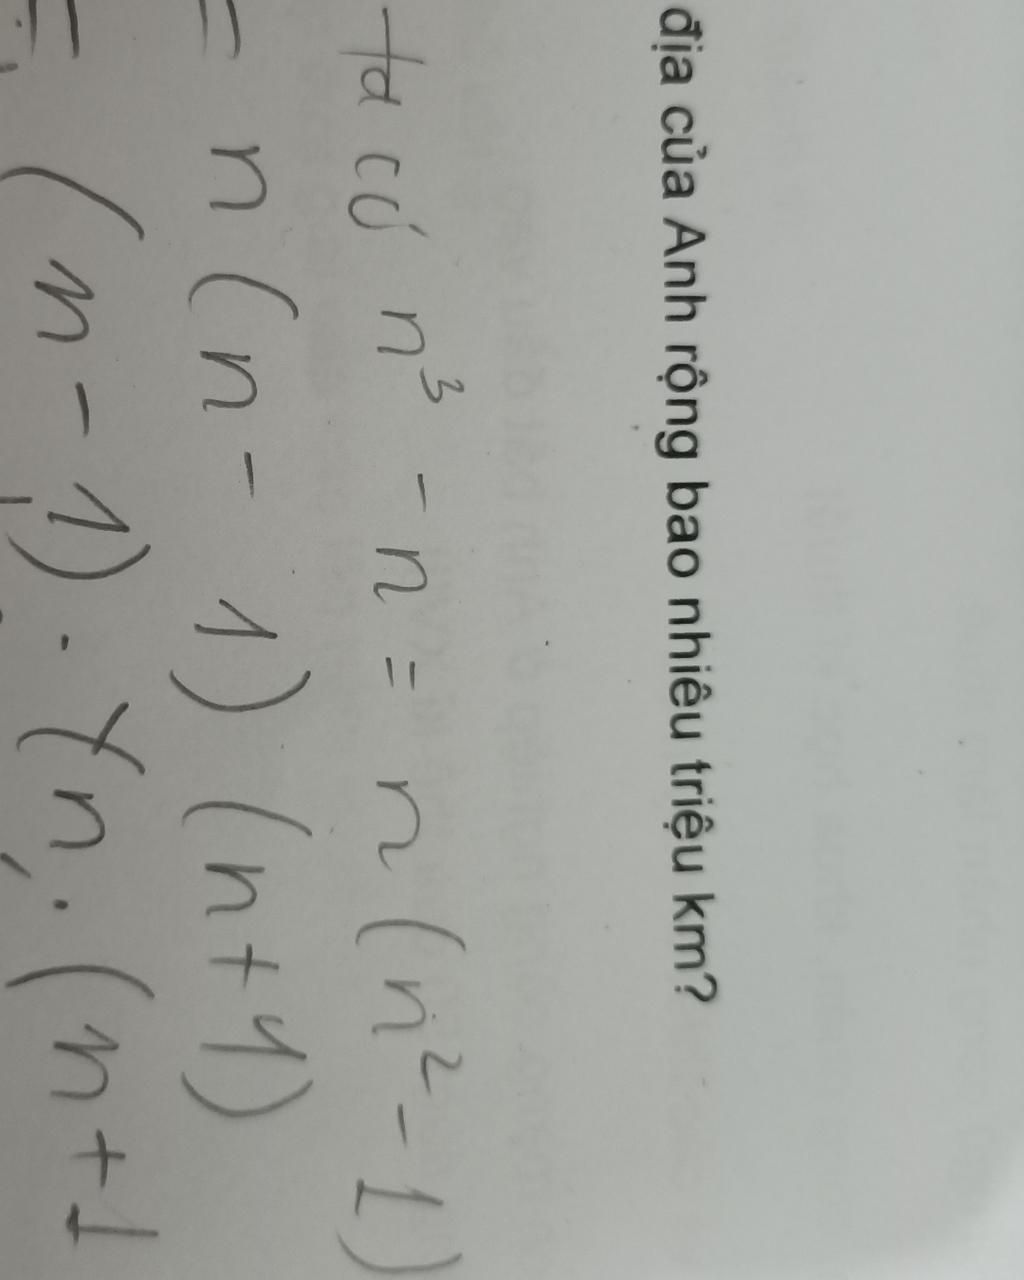 địa của Anh rộng bao nhiêu triệu km?
ta có n³ - n = n (n² - 1)
= n (n - 1) (n + 1)
= (n - 1) . (n . (n + 1